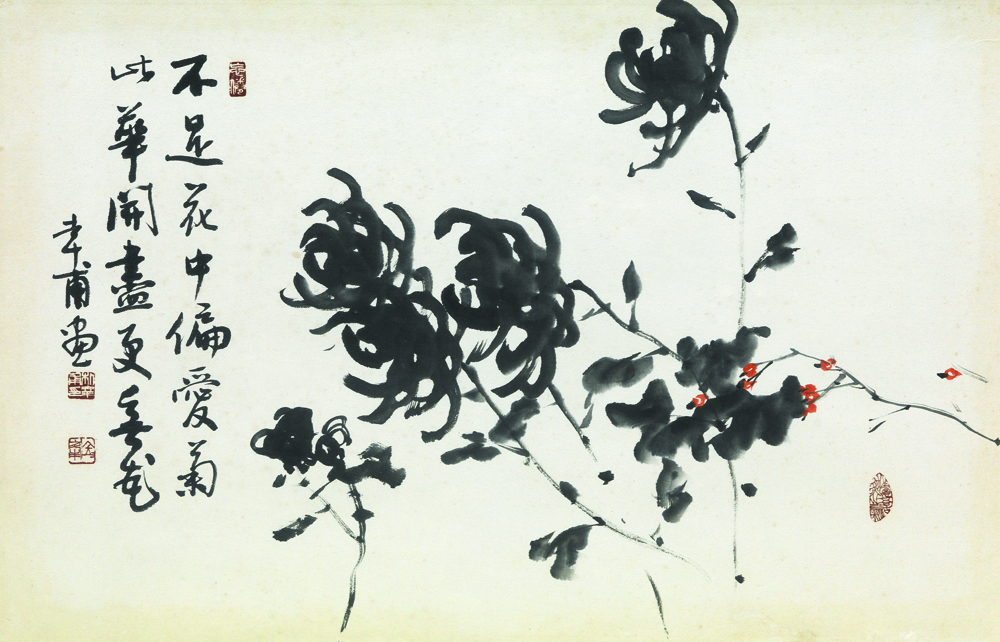 不是花中偏愛菊
此華開盡更無花
幸甫畫